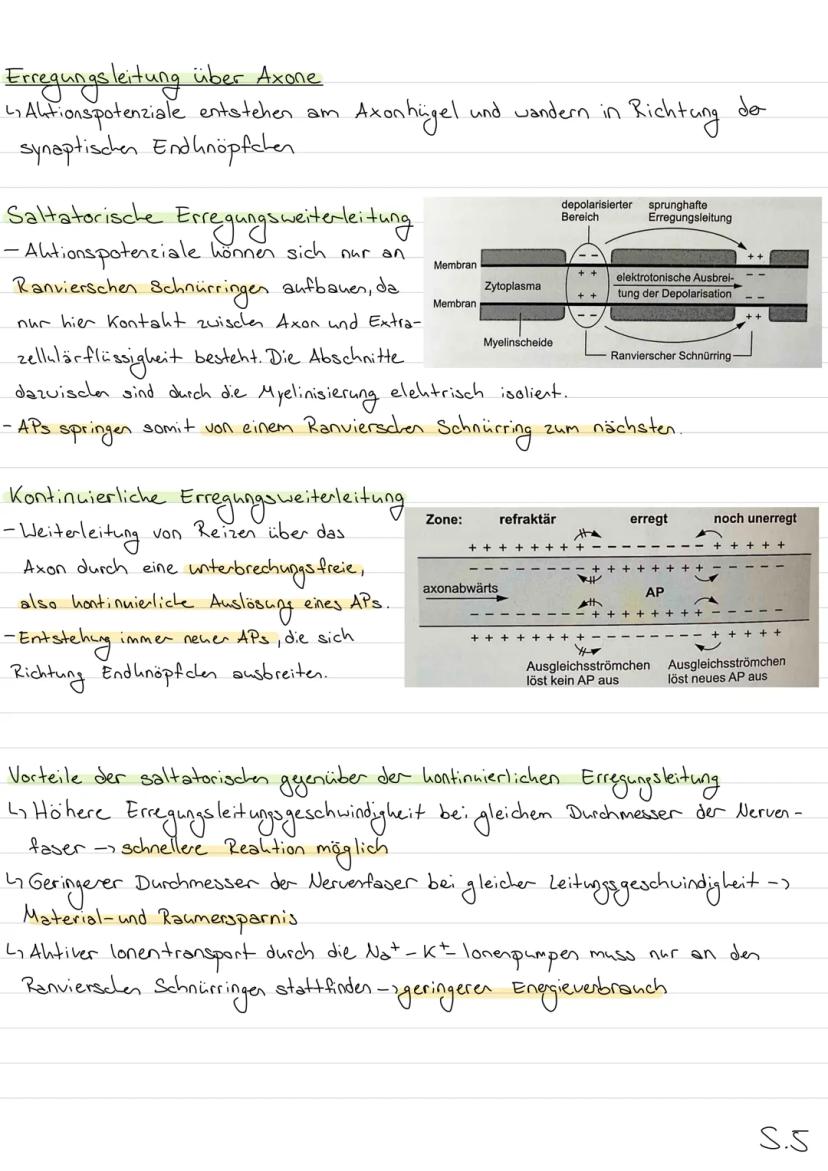 Erregungsleitung über Axone
↳ Aktionspotenziale entstehen am Axonhügel und wandern in Richtung der
synaptischen Endknöpfchen
Saltatorische Erregungsweiterleitung
- Aktionspotenziale können sich nur an
Ranvierschen Schnürringen aufbauen, da
nur hier Kontakt zwischen Axon und Extra-
zellulärflüssigkeit besteht. Die Abschnitte
dazwischen sind durch die Myelinisierung elektrisch isoliert.
- APs springen somit von einem Ranvierschen Schnürring zum nächsten.
depolarisierter Bereich
sprunghafte Erregungsleitung
Membran
Zytoplasma
elektrotonische Ausbrei-
tung der Depolarisation
Membran
Myelinscheide
Ranvierscher Schnürring
Kontinuierliche Erregungsweiterleitung
- Weiterleitung von Reizen über das
Axon durch eine unterbrechungsfreie,
also kontinuierliche Auslösung eines APs.
- Entstehung immer neuer APs, die sich
Richtung Endknöpfchen ausbreiten.
Zone: refraktär erregt noch unerregt
+ + + + + + + + - - - - - - - - + + + + +
- - - - - - - - + + + + + + + + - - - - -
axonabwärts AP
- - - - - - - - + + + + + + + + - - - - -
+ + + + + + + + - - - - - - - - + + + + +
Ausgleichsströmchen Ausgleichsströmchen
löst kein AP aus löst neues AP aus
Vorteile der saltatorischen gegenüber der kontinuierlichen Erregungsleitung
↳ Höhere Erregungsleitungsgeschwindigkeit bei gleichem Durchmesser der Nerven-
faser → schnellere Reaktion möglich
↳ Geringerer Durchmesser der Nervenfaser bei gleicher Leitungsgeschwindigkeit →
Material- und Raumersparnis
↳ Aktiver Ionentransport durch die Na⁺-K⁺-Ionenpumpen muss nur an den
Ranvierschen Schnürringen stattfinden → geringerer Energieverbrauch
S.5